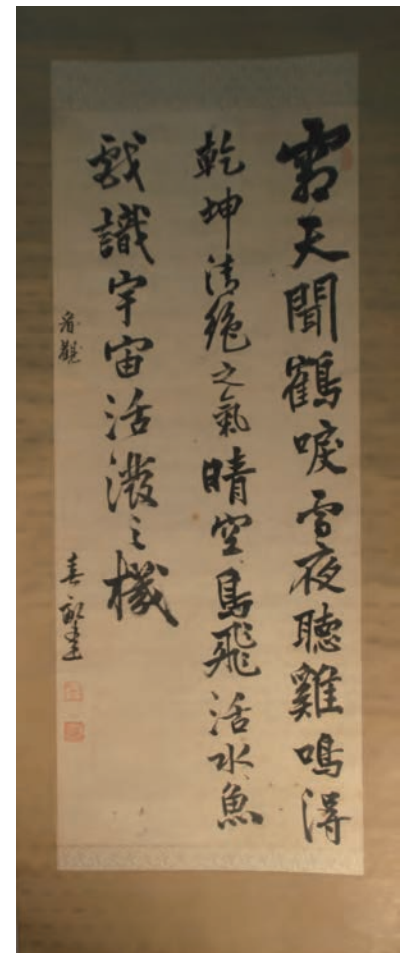 霜天聞鶴唳雪夜聴雞鳴得
乾坤清絶之氣晴空鳥飛活水魚
戯識宇宙活潑之機
看観